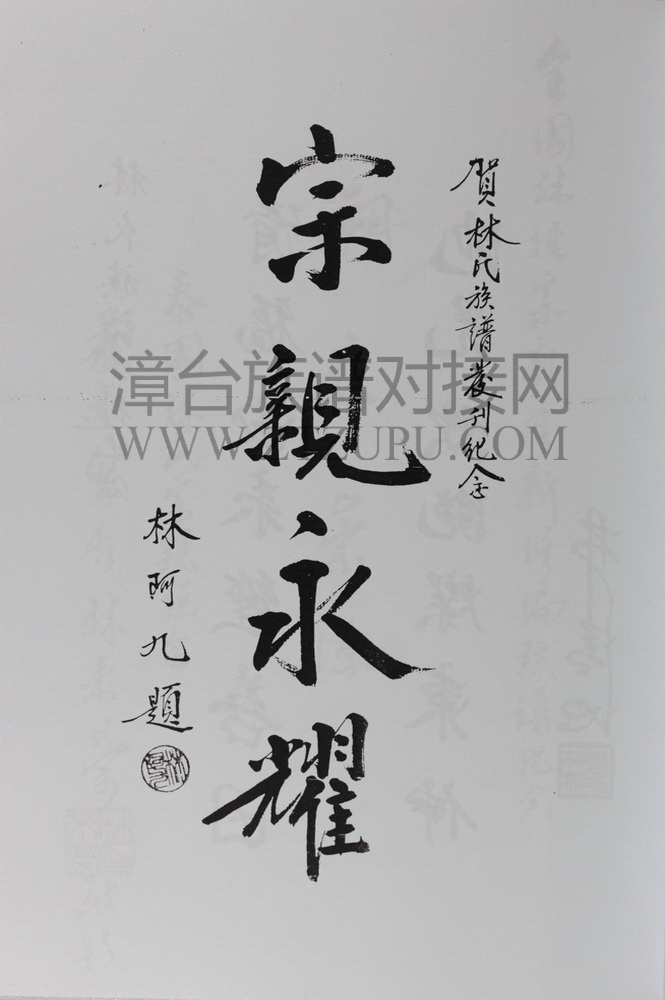 賀林氏族譜發刊紀念
宗親永耀
林阿九題
漳台族谱对接网
WWW.ZTZUPU.COM